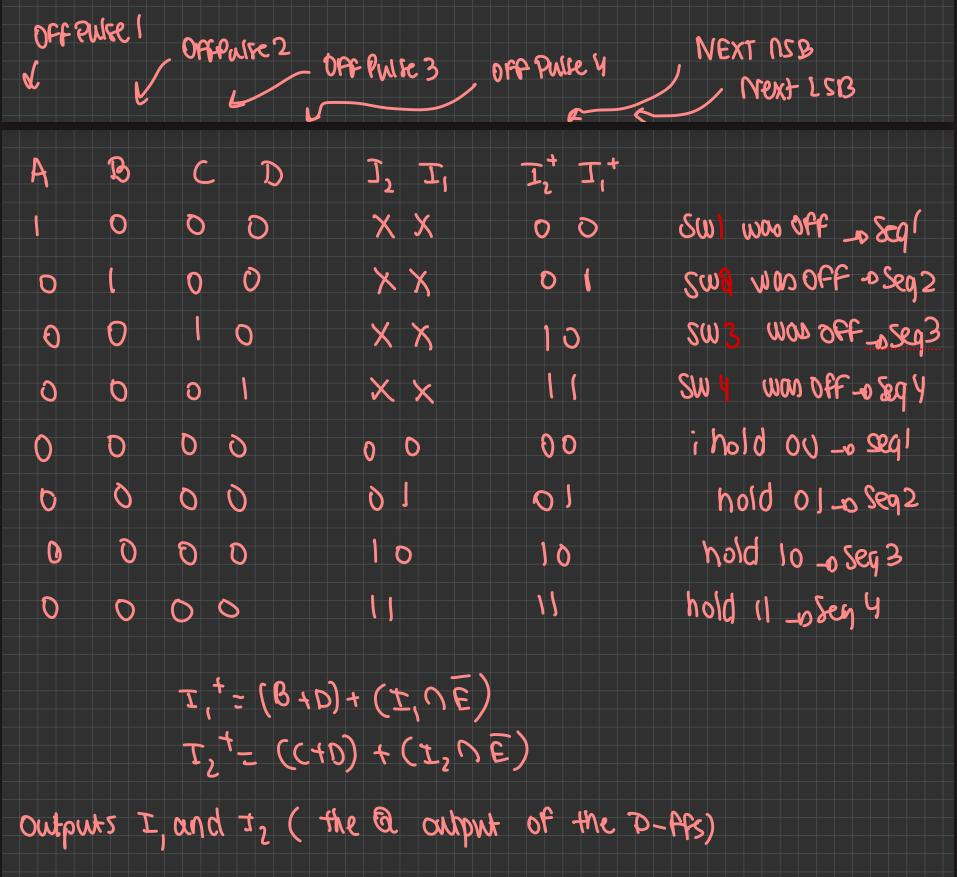 OFF Pulse 1
OFF Pulse 2
OFF Pulse 3
OFF Pulse 4
NEXT MSB
Next LSB
A B C D I₂ I₁ I₂⁺ I₁⁺
1 0 0 0 X X 0 0 SW1 was off → Seq1
0 1 0 0 X X 0 1 SW2 was off → Seq2
0 0 1 0 X X 1 0 SW3 was off → Seq3
0 0 0 1 X X 1 1 SW4 was off → Seq4
0 0 0 0 0 0 0 0 i hold 00 → seq1
0 0 0 0 0 1 0 1 hold 01 → Seq2
0 0 0 0 1 0 1 0 hold 10 → Seq3
0 0 0 0 1 1 1 1 hold 11 → Seq4
I₁⁺ = (B+D) + (I₁ ∩ E̅)
I₂⁺ = (C+D) + (I₂ ∩ E̅)
Outputs I₁ and I₂ ( the Q output of the D-ffs)